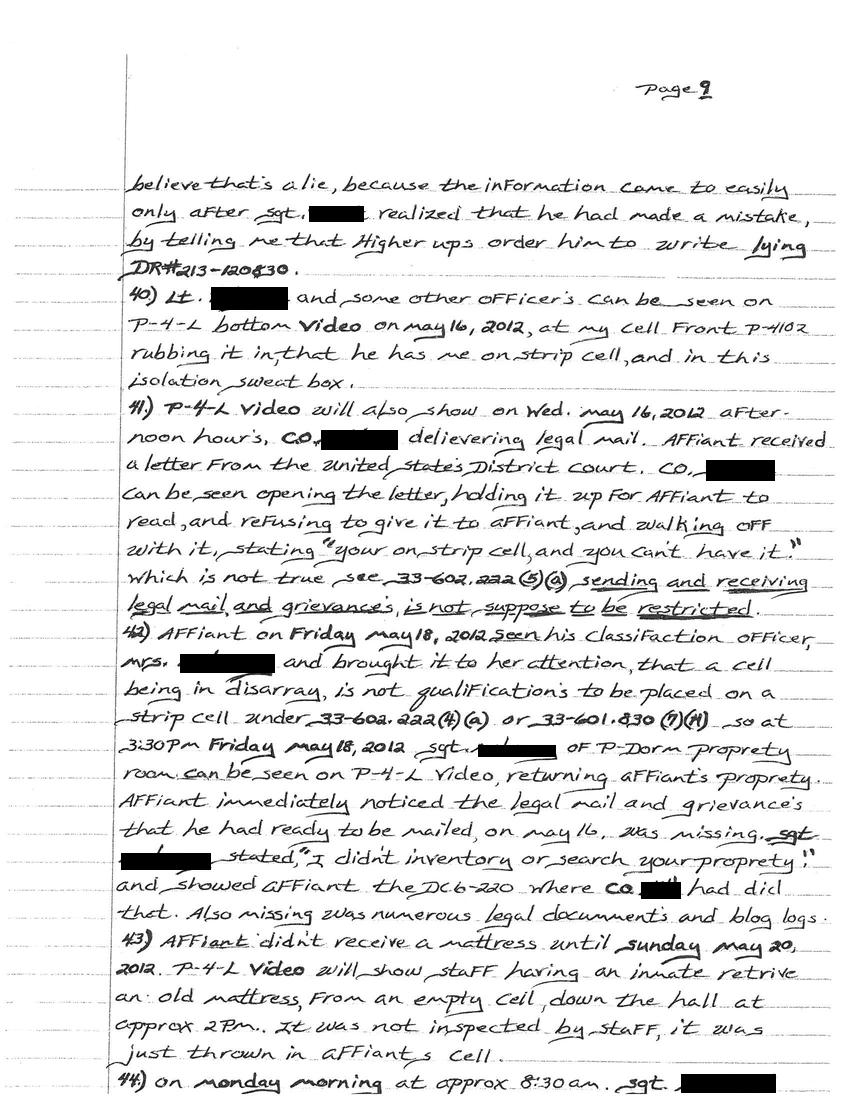 Page 9
believe that's a lie, because the information came to easily
only after sgt. realized that he had made a mistake,
by telling me that Higher ups order him to write lying
DR#213-120830.
40.) Lt. and some other officer's can be seen on
P-4-L bottom Video on may 16, 2012, at my cell Front P-4102
rubbing it in, that he has me on strip cell, and in this
isolation sweat box.
41.) P-4-L Video will also show on Wed. may 16, 2012 after-
noon hour's, CO. delievering legal mail. Affiant received
a letter From the united state's District court. CO.
Can be seen opening the letter, holding it up For Affiant to
read, and refusing to give it to affiant, and walking off
with it, stating "your on strip cell, and you can't have it."
Which is not true see 33-602.222(5)(a) sending and receiving
legal mail, and grievance's, is not suppose to be restricted.
42) Affiant on Friday may 18, 2012 seen his classifaction officer,
mrs. and brought it to her attention, that a cell
being in disarray, is not qualification's to be placed on a
strip cell under 33-602.222(4)(a) or 33-601.830(7)(H) so at
3:30Pm Friday may 18, 2012 sgt. of P-Dorm proprety
room can be seen on P-4-L Video, returning affiant's proprety.
Affiant immediately noticed the legal mail and grievance's
that he had ready to be mailed, on may 16, was missing. sgt
stated, "I didn't inventory or search your proprety."
and showed affiant the DC6-220 where CO. had did
that. Also missing was numerous legal document's and blog logs.
43) Affiant didn't receive a mattress until sunday may 20,
2012. P-4-L Video will show staff having an inmate retrive
an old mattress, From an empty cell, down the hall at
approx 2Pm.. It was not inspected by staff, it was
just thrown in affiant,s cell.
44.) on monday morning at approx 8:30am. sgt.